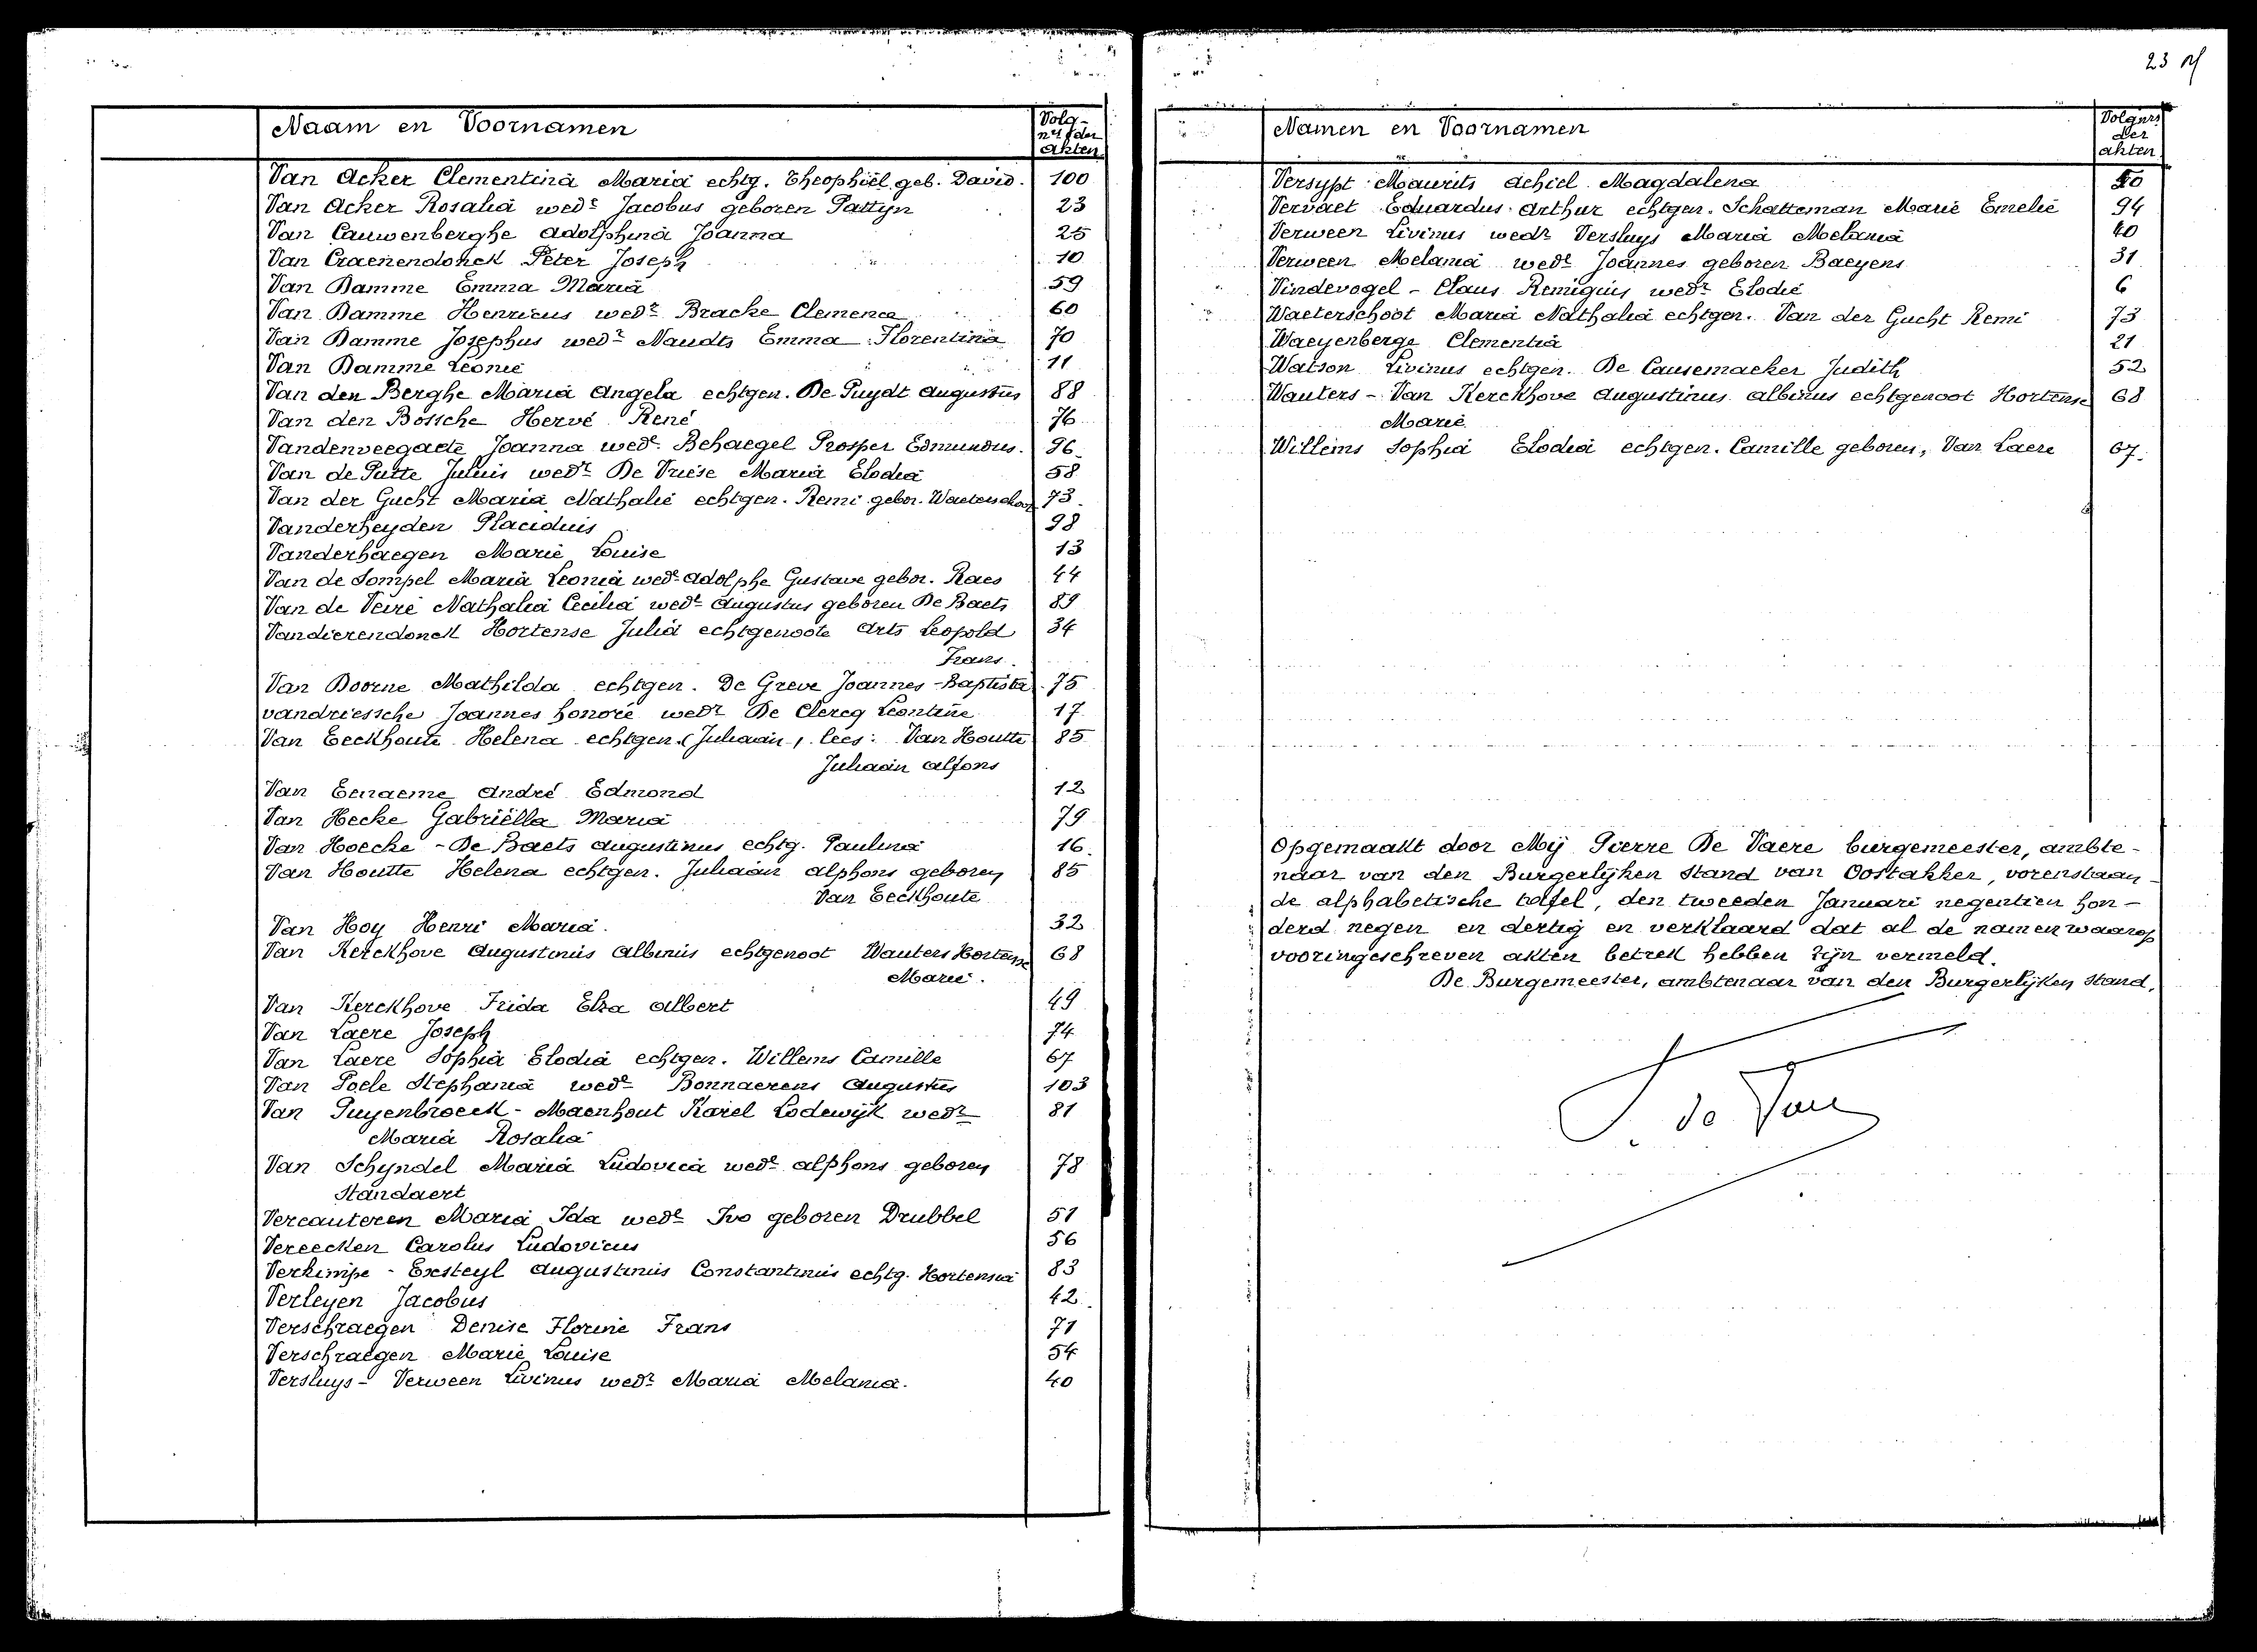 23
Naam en Voornamen
Volg-
nrs der
akten
Van Acker Clementina Maria echtg. Theophiel geb. David. 100
Van Acker Rosalia wede Jacobus geboren Pattyn 23
Van Cauwenberghe Adolphina Joanna 25
Van Craenendonck Peter Joseph 10
Van Damme Emma Maria 59
Van Damme Henricus wedr Bracke Clemence 60
Van Damme Josephus wedr Naudts Emma Florentina 70
Van Damme Leonie 11
Van den Berghe Maria Angela echtgen. De Puydt Augustus 88
Van den Bossche Hervé René 76
Vandenveegaete Joanna wede Behaegel Prosper Edmundus. 96
Van de Putte Julius wedr De Vriese Maria Elodia 58
Van der Gucht Maria Nathalie echtgen. Remi gebor. Waeterschoot 73
Vanderheyden Placidus 98
Vanderhaegen Marie Louise 13
Van de Sompel Maria Leonia wede Adolphe Gustave gebor. Raes 44
Van de Veire Nathalia Cecilia wede Augustus geboren De Baets 89
Vandierendonck Hortense Julia echtgenoote Arts Leopold 34
Frans.
Van Doorne Mathilda echtgen. De Greve Joannes-Baptista 75
vandriessche Joannes honoré wedr De Clercq Leontine 17
Van Eeckhoute Helena echtgen. (Juliaan, lees: Van Houtte 85
Juliaan Alfons
Van Eenaeme André Edmond 12
Van Hecke Gabriëlla Maria 79
Van Hoecke - De Baets Augustinus echtg. Paulina 16
Van Houtte Helena echtgen. Juliaan Alphons geboren 85
Van Eeckhoute
Van Hoy Henri Maria. 32
Van Kerckhove Augustinus Albinus echtgenoot Wauters Hortense 68
Marie.
Van Kerckhove Frida Elza Albert 49
Van Laere Joseph 74
Van Laere Sophia Elodia echtgen. Willems Camille 67
Van Poele Stephania wede Bonnaerens Augustus 103
Van Puyenbroeck - Maenhout Karel Lodewijk wedr 81
Maria Rosalia
Van Schyndel Maria Ludovica wede Alphons geboren 78
Standaert
Vercauteren Maria Ida wede Ivo geboren Drubbel 51
Vereecken Carolus Ludovicus 56
Verkimpe - Exsteyl Augustinus Constantinus echtg. Hortensia 83
Verleyen Jacobus 42
Verschraegen Denise Florine Frans 71
Verschraegen Marie Louise 54
Versluys - Verween Livinus wedr Maria Melania. 40
Namen en Voornamen
Volgnrs
der
akten
Versypt Maurits Achiel Magdalena
Vervaet Eduardus Arthur echtgen. Schatteman Marie Emelie 94
Verween Livinus wedr Versluys Maria Melania 40
Verween Melania wede Joannes geboren Baeyens 31
Vindevogel - Claus Remigius wedr Elodie 6
Waeterschoot Maria Nathalia echtgen. Van der Gucht Remi 73
Waeyenberge Clementia 21
Watson Livinus echtgen. De Causemaeker Judith 52
Wauters - Van Kerckhove Augustinus Albinus echtgenoot Hortense 68
Marie
Willems Sophia Elodia echtgen. Camille geboren, Van Laere 67.
Opgemaakt door Mij Pierre De Vaere burgemeester, ambte-
naar van den Burgerlijken Stand van Oostakker, vorenstaan-
de alphabetische tafel, den tweeden Januari negentien hon-
derd negen en dertig en verklaard dat al de namen waarop
vooringeschreven akten betrek hebben zijn vermeld.
De Burgemeester, ambtenaar van den Burgerlijken Stand,